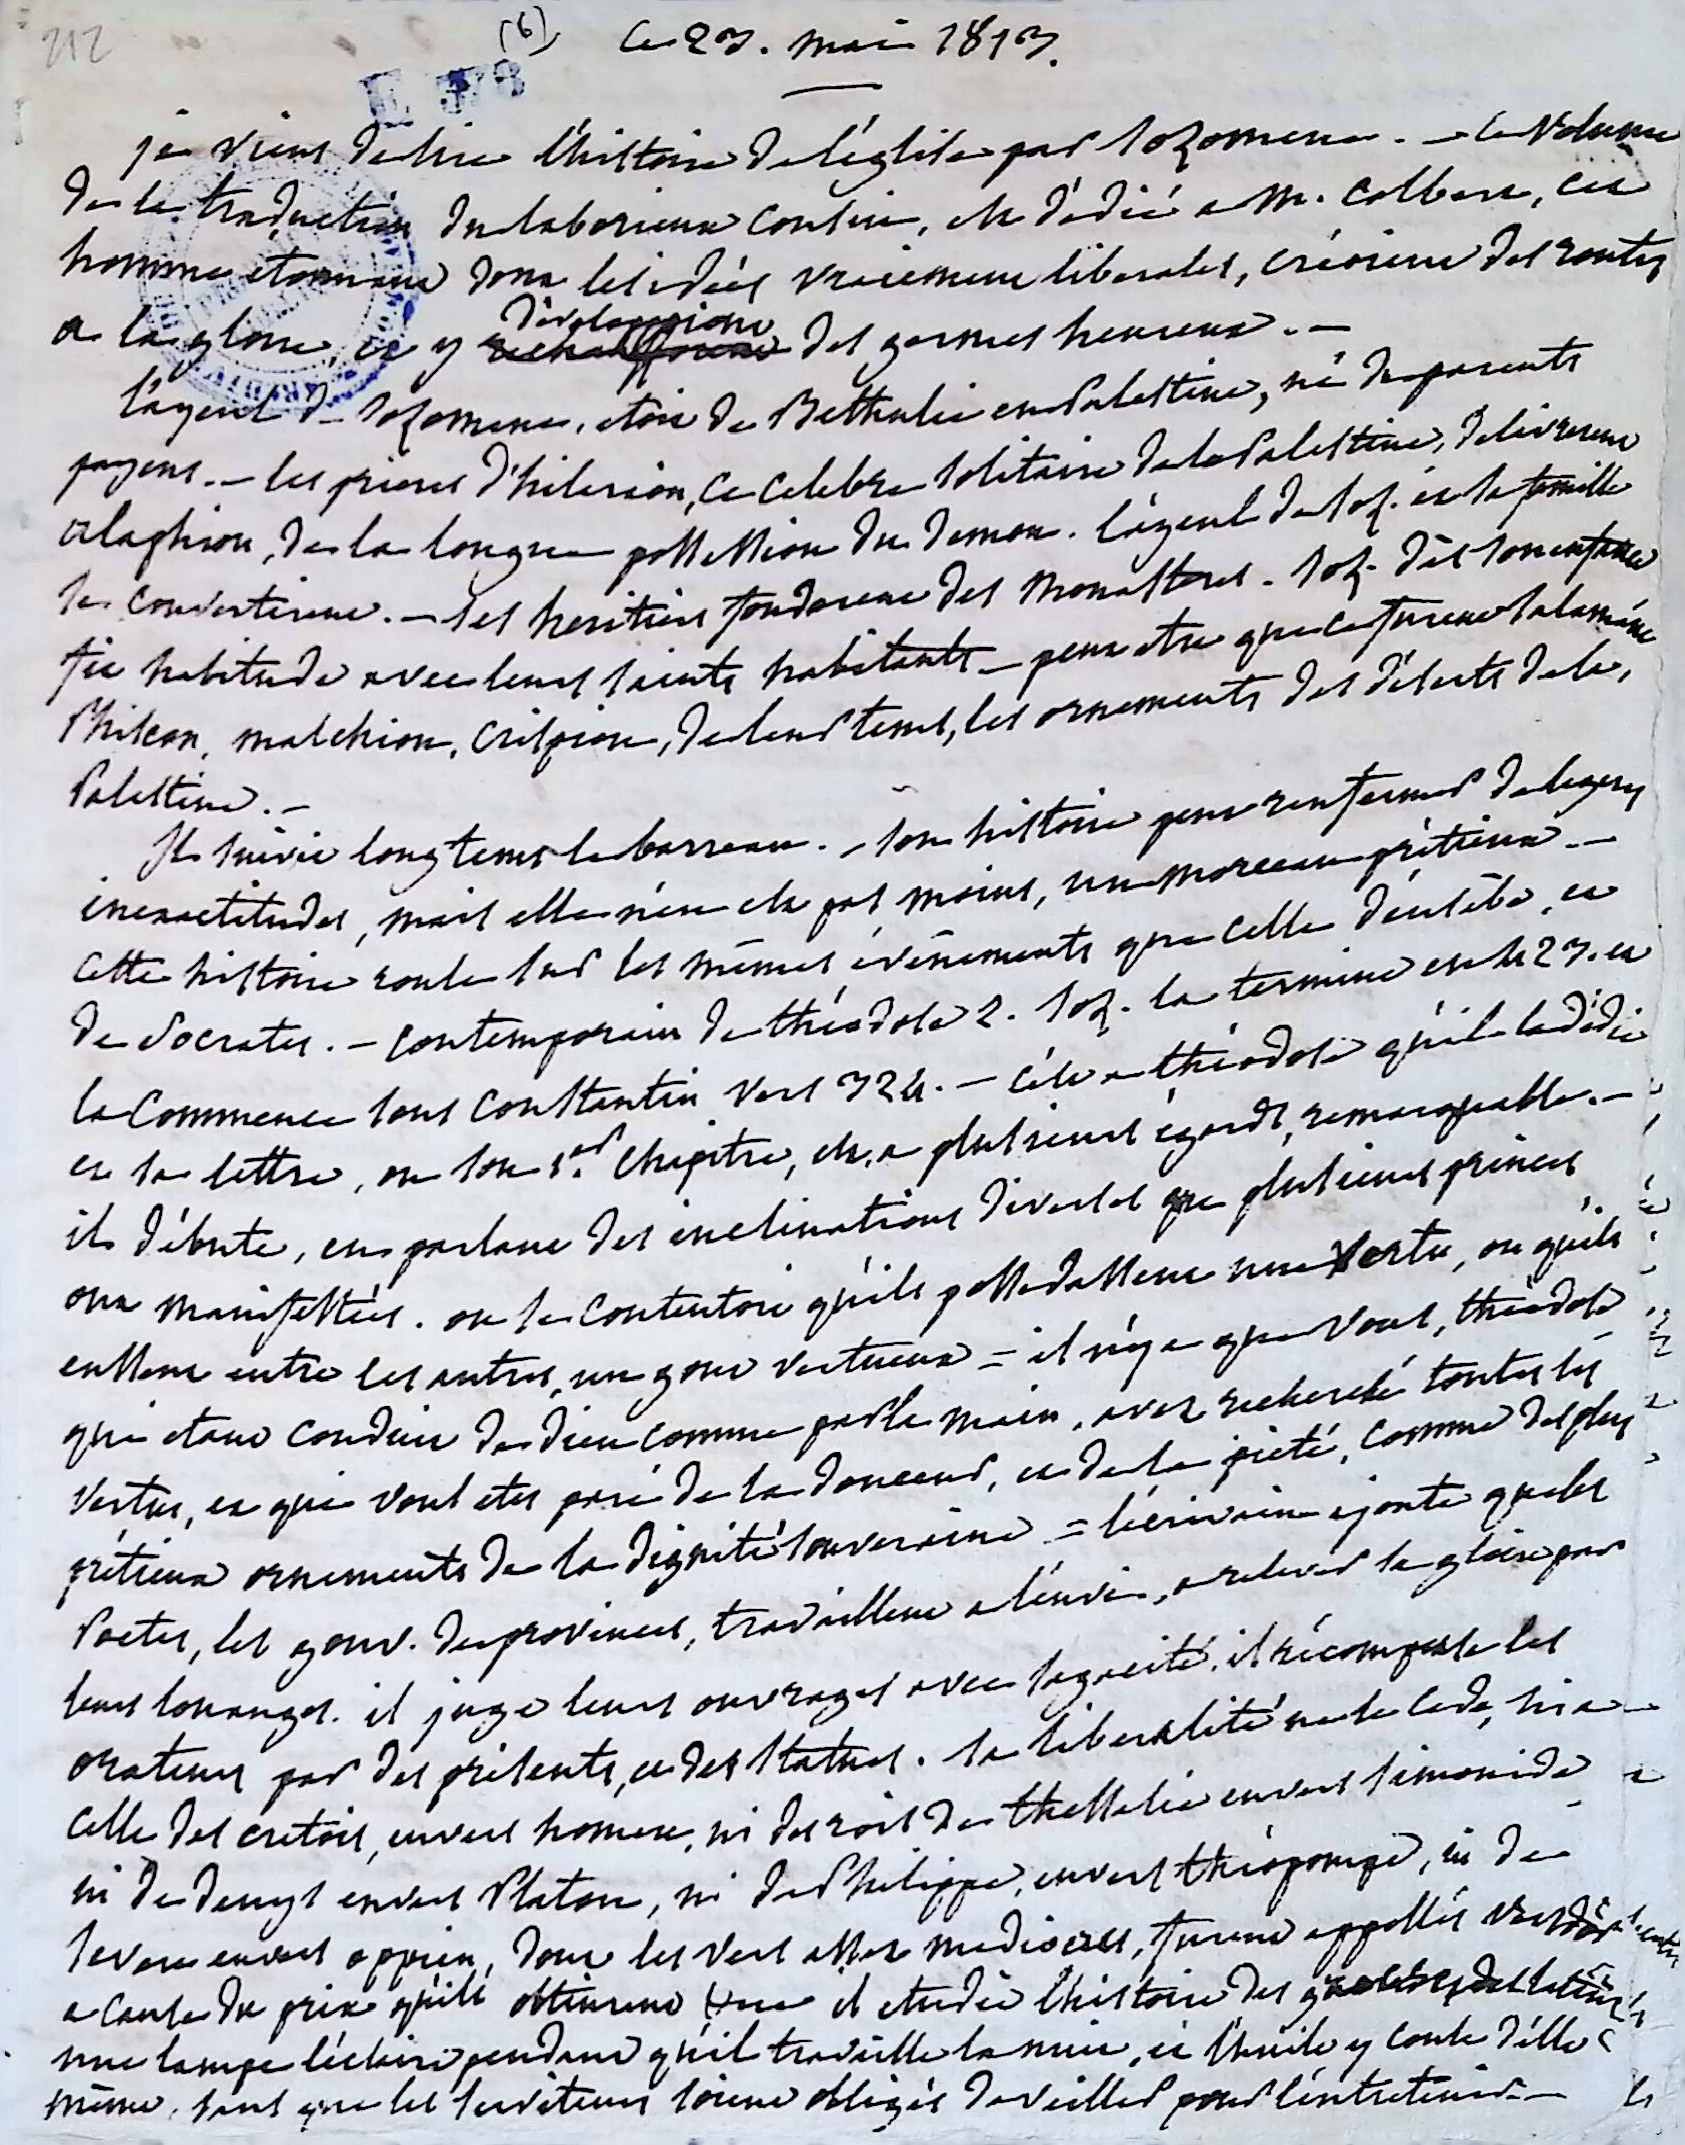 212
(6) Ce 23. mai 1813.
je viens de lire l'histoire de l'église par Sozomene. - le volume
de la traduction du laborieux Cousin, est dédié a M. Colbert, cet
homme etonnant dont les idées vraiement liberales, créoient des routes
a la gloire, et y developpoient des germes heureux. -
l'ayeul de Sozomene, etoit de Bethulie en Palestine, né de parents
payens. - les prieres d'hilarion, ce celebre solitaire de la Palestine, delivrerent
alaphion, de la longue possession du demon. l'ayeul de Soz. et sa famille
se convertirent. - ses heritiers fonderent des monasteres. Soz. dès son enfance
fit habitude avec leurs saints habitants - peut etre que ce furent Salamáne
Phiscon, malchion, Crispion, de leur tems, les ornements des déserts de la
Palestine. -
Il suivit longtems le barreau. - son histoire peut renfermer de legeres
inexactitudes, mais elle n'en est pas moins, un morceau prétieux. -
cette histoire roule sur les mêmes événements que celle d'eusébe, et
de Socrates. - contemporain de théodose 2. Soz. la termine en 423. et
la commence sous Constantin vers 324. - c'est a théodose qu'il la dédie
et sa lettre, ou son 1.er chapitre, est a plusieurs égards, remarquable. -
il débute, en parlant des inclinations diverses que plusieurs princes
ont manifestées. on se contentoit qu'ils possedassent une vertu, ou qu'ils
eussent entre les autres, un gout vertueux = il n'y a que vous, théodose
qui etant conduit de dieu comme par la main, avez recherché toutes les
vertus, et qui vous etes paré de la douceur, et de la pieté, comme des plus
prétieux ornements de la dignité souveraine = l'écrivain ajoute que les
Poetes, les gouv. de provinces, travaillent a l'envie, a relever sa gloire par
leurs louanges. il juge leurs ouvrages avec sagacité. il récompense les
orateurs par des présents, et des statues. sa liberalité ne le cede, ni a
celle des cretois, envers homere, ni des rois de thessalie envers simonide
ni de denys envers Platon, ni de Philippe, envers théopompe, ni de
severe envers oppien, dont les vers assez mediocres, furent appellés vers dorés
a cause du prix qu'ils obtinrent il etudie l'histoire des grecs et des latins
une lampe l'éclaire pendant qu'il travaille la nuit, et l'huile y coule d'elle
même, sans que les serviteurs soient obligés de veiller pour l'entretenir. -